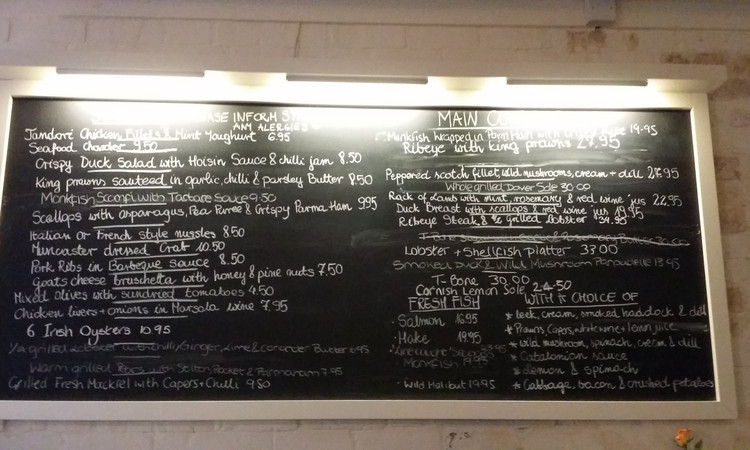 PLEASE INFORM ST
ANY ALERGIES
Tandori Chicken Fillets & Mint Youghurt 6.95
Seafood Chowder 9.50
Crispy Duck Salad with Hoisin Sauce & chilli jam 8.50
King prawns sauteed in garlic, chilli & parsley Butter 8.50
Monkfish Scampi with Tartare Sauce 9.50
Scallops with asparagus, Pea Puree & Crispy Parma Ham 995
Italian or French style mussles 8.50
Muncaster dressed Crab 10.50
Pork Ribs in Barbeque sauce 8.50
Goats cheese bruschetta with honey & pine nuts 7.50
Mixed olives with sundried tomatoes 4.50
Chicken livers + onions in Marsala wine 7.95
6 Irish Oysters 10.95
grilled Lobster with Chilli, Ginger, Lime & Coriander Butter 6.95
Warm grilled Pears with Stilton, Rocket & Parmaham 7.95
Grilled Fresh Mackrel with Capers + Chilli 9.50
MAIN
Monkfish wrapped in Parma Ham with 19.95
Ribeye with king prawns 27.95
Peppered scotch fillet, wild mushrooms, cream + dill 27.95
Whole grilled Dover Sole 30.00
Rack of Lamb with mint, rosemary & red wine jus 22.95
Duck Breast with scallops & red wine jus 19.95
Ribeye Steak & ½ grilled lobster 34.95
Lobster + Shellfish platter 33.00
Smoked Duck & Wild Mushroom 13.95
T-Bone 30.00
Cornish Lemon Sole 24.50
FRESH FISH
· Salmon 16.95
· Hake 19.95
· Monkfish 19.95
· Wild Halibut 19.95
WITH A CHOICE OF
* leek, cream, smoked haddock & dill
* Prawns, Capers, white wine + lemon juice
* wild mushroom, spinach, cream & dill
* Catalonian sauce
* Lemon & spinach
* Cabbage, bacon & crushed potatoes